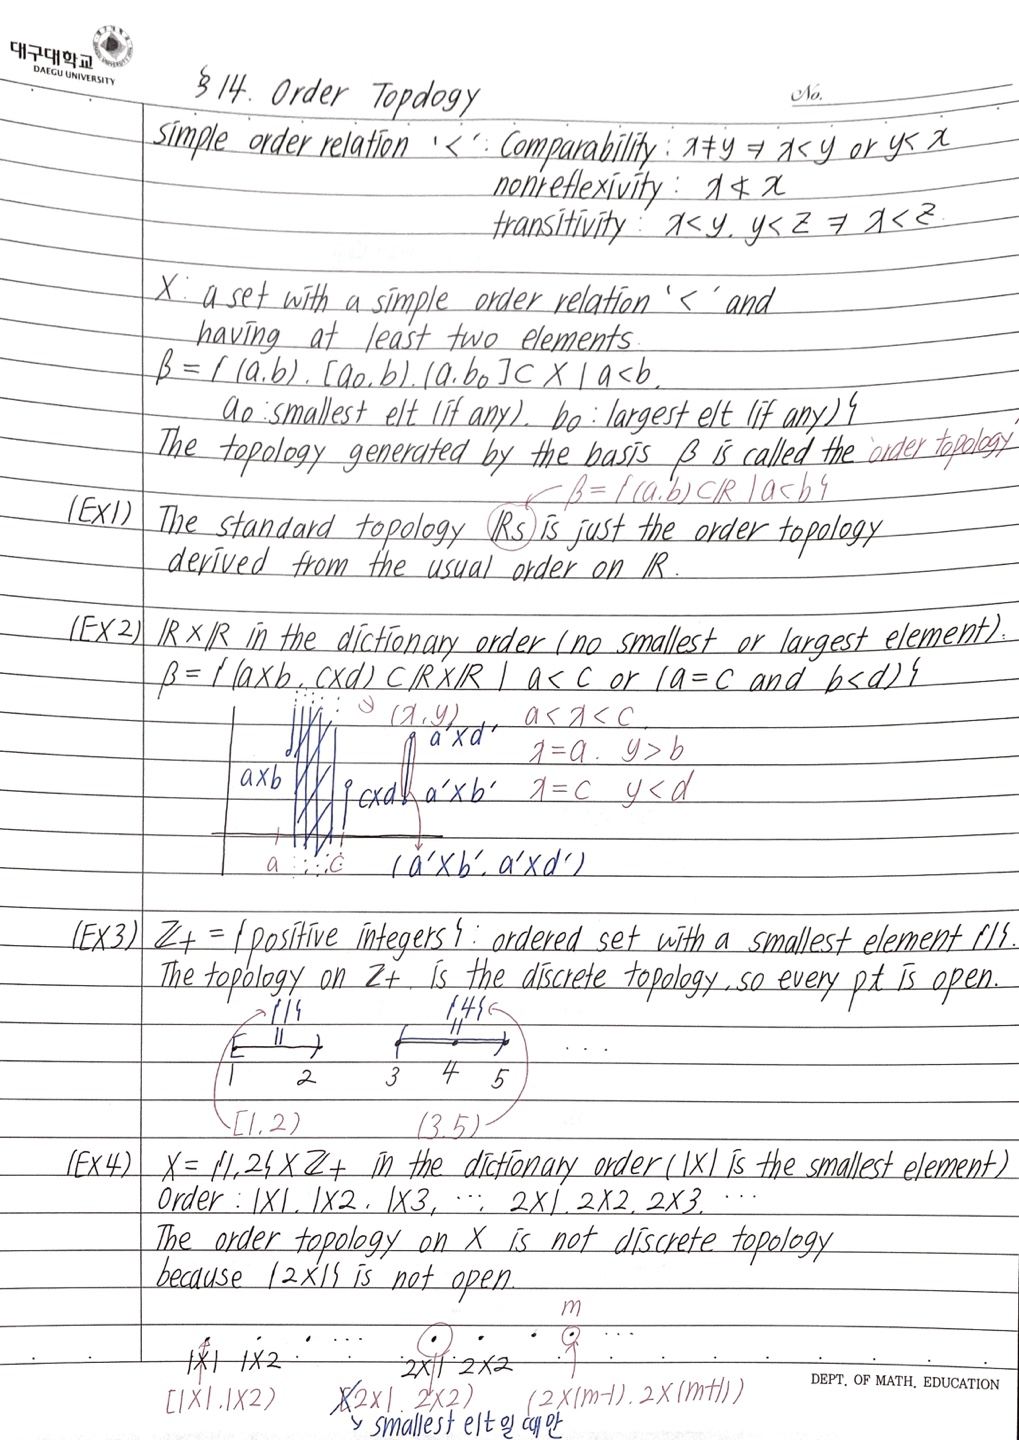 대구대학교
DAEGU UNIVERSITY
§14. Order Topology
No.
simple order relation '<' : Comparability : x≠y ⇒ x<y or y<x
nonreflexivity : x≮x
transitivity : x<y, y<z ⇒ x<z.
X : a set with a simple order relation '<' and
having at least two elements.
β = { (a,b), [a₀,b), (a,b₀] ⊂ X | a<b,
a₀ : smallest elt (if any), b₀ : largest elt (if any) }
The topology generated by the basis β is called the 'order topology'
β = { (a,b) ⊂ ℝ | a<b }
(Ex1) The standard topology ℝs is just the order topology
derived from the usual order on ℝ.
(Ex2) ℝ×ℝ in the dictionary order (no smallest or largest element).
β = { (a×b, c×d) ⊂ ℝ×ℝ | a<c or (a=c and b<d) }
(x,y) a<x<c
a'×d' x=a, y>b
a×b c×d a'×b' x=c y<d
a c (a'×b', a'×d')
(Ex3) ℤ₊ = {positive integers} : ordered set with a smallest element {1}.
The topology on ℤ₊ is the discrete topology, so every pt is open.
{1} {4}
1 2 3 4 5 ...
[1,2) (3,5)
(Ex4) X = {1,2} × ℤ₊ in the dictionary order (1×1 is the smallest element)
Order : 1×1, 1×2, 1×3, ..., 2×1, 2×2, 2×3, ...
The order topology on X is not discrete topology
because {2×1} is not open.
m
... ...
1×1 1×2 2×1 2×2
[1×1, 1×2) [2×1, 2×2) (2×(m-1), 2×(m+1))
↘ smallest elt일 때만
DEPT. OF MATH. EDUCATION